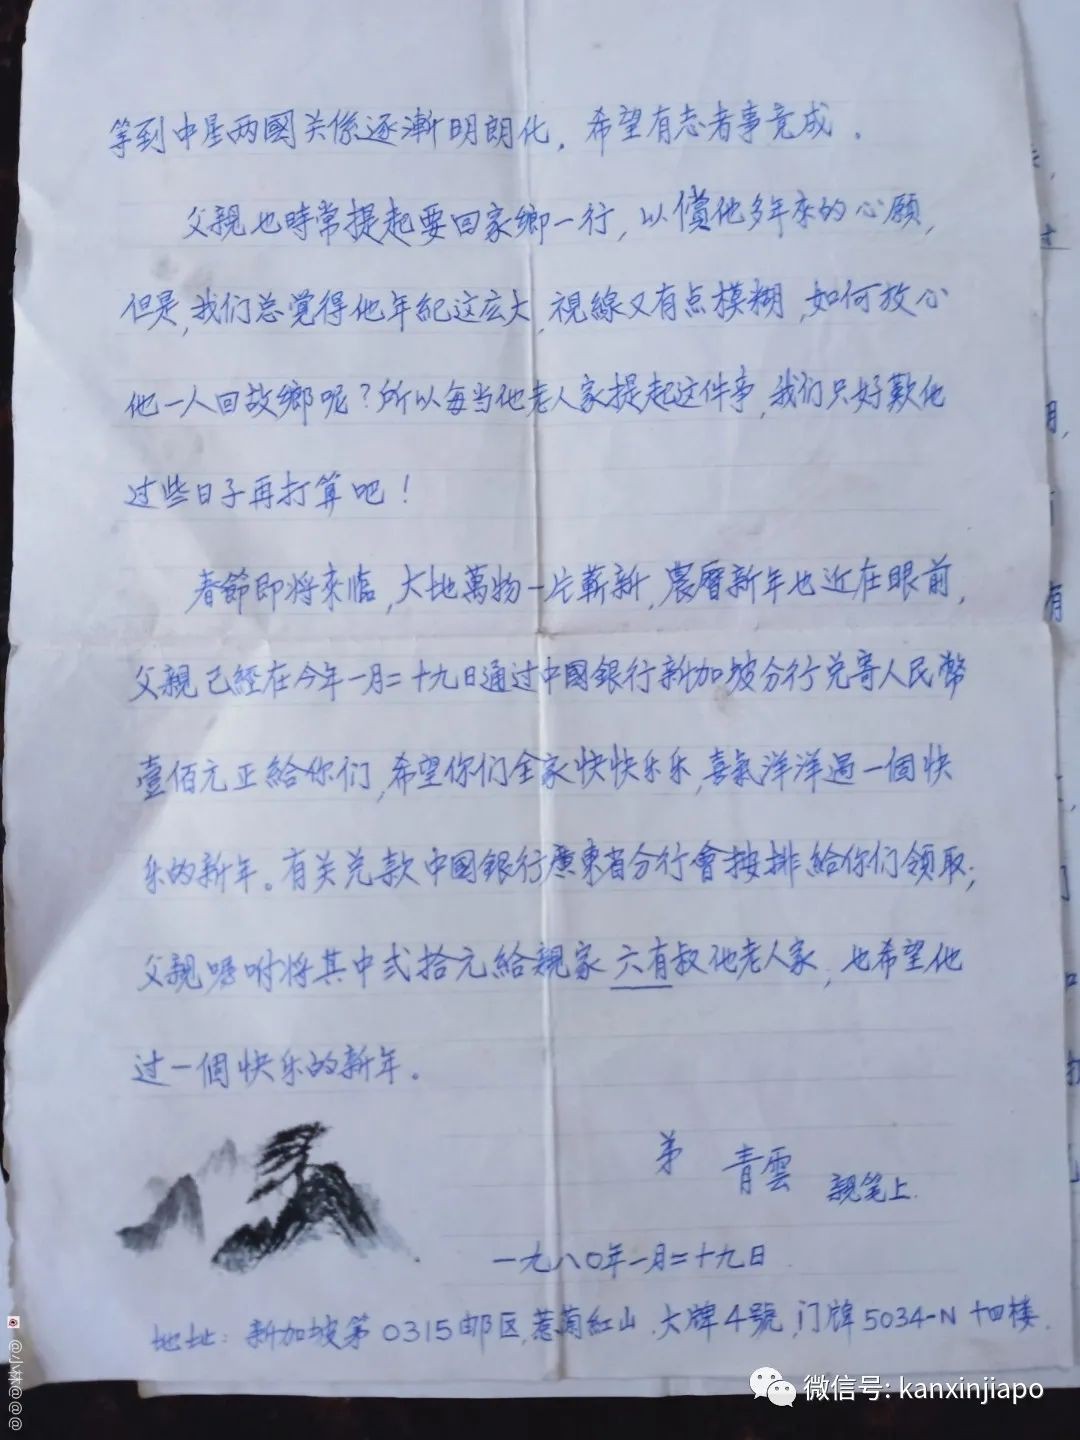 等到中星两國关係逐漸明朗化，希望有志者事竟成。
父親也時常提起要回家鄉一行，以償他多年來的心願，
但是，我们总覺得他年紀这広大，視線又有点模糊，如何放心
他一人回故鄉呢？所以每当他老人家提起这件事，我们只好歎他
过些日子再打算吧！
春節即将來临，大地萬物一片嶄新，農曆新年也近在眼前，
父親已經在今年一月二十九日通过中國銀行新加坡分行兑寄人民幣
壹佰元正給你们，希望你们全家快快乐乐，喜氣洋洋過一個快
乐的新年。有关兑款中國銀行廣東省分行會按排給你们領取；
父親嘱咐将其中弍拾元給親家六有叔他老人家，也希望他
过一個快乐的新年。
弟 青雲 親笔上.
一九八〇年一月二十九日
地址：新加坡第0315邮区，惹蘭紅山．大牌4號，门牌5034-N 十四楼．
@小林@@@
微信号: kanxinjiapo